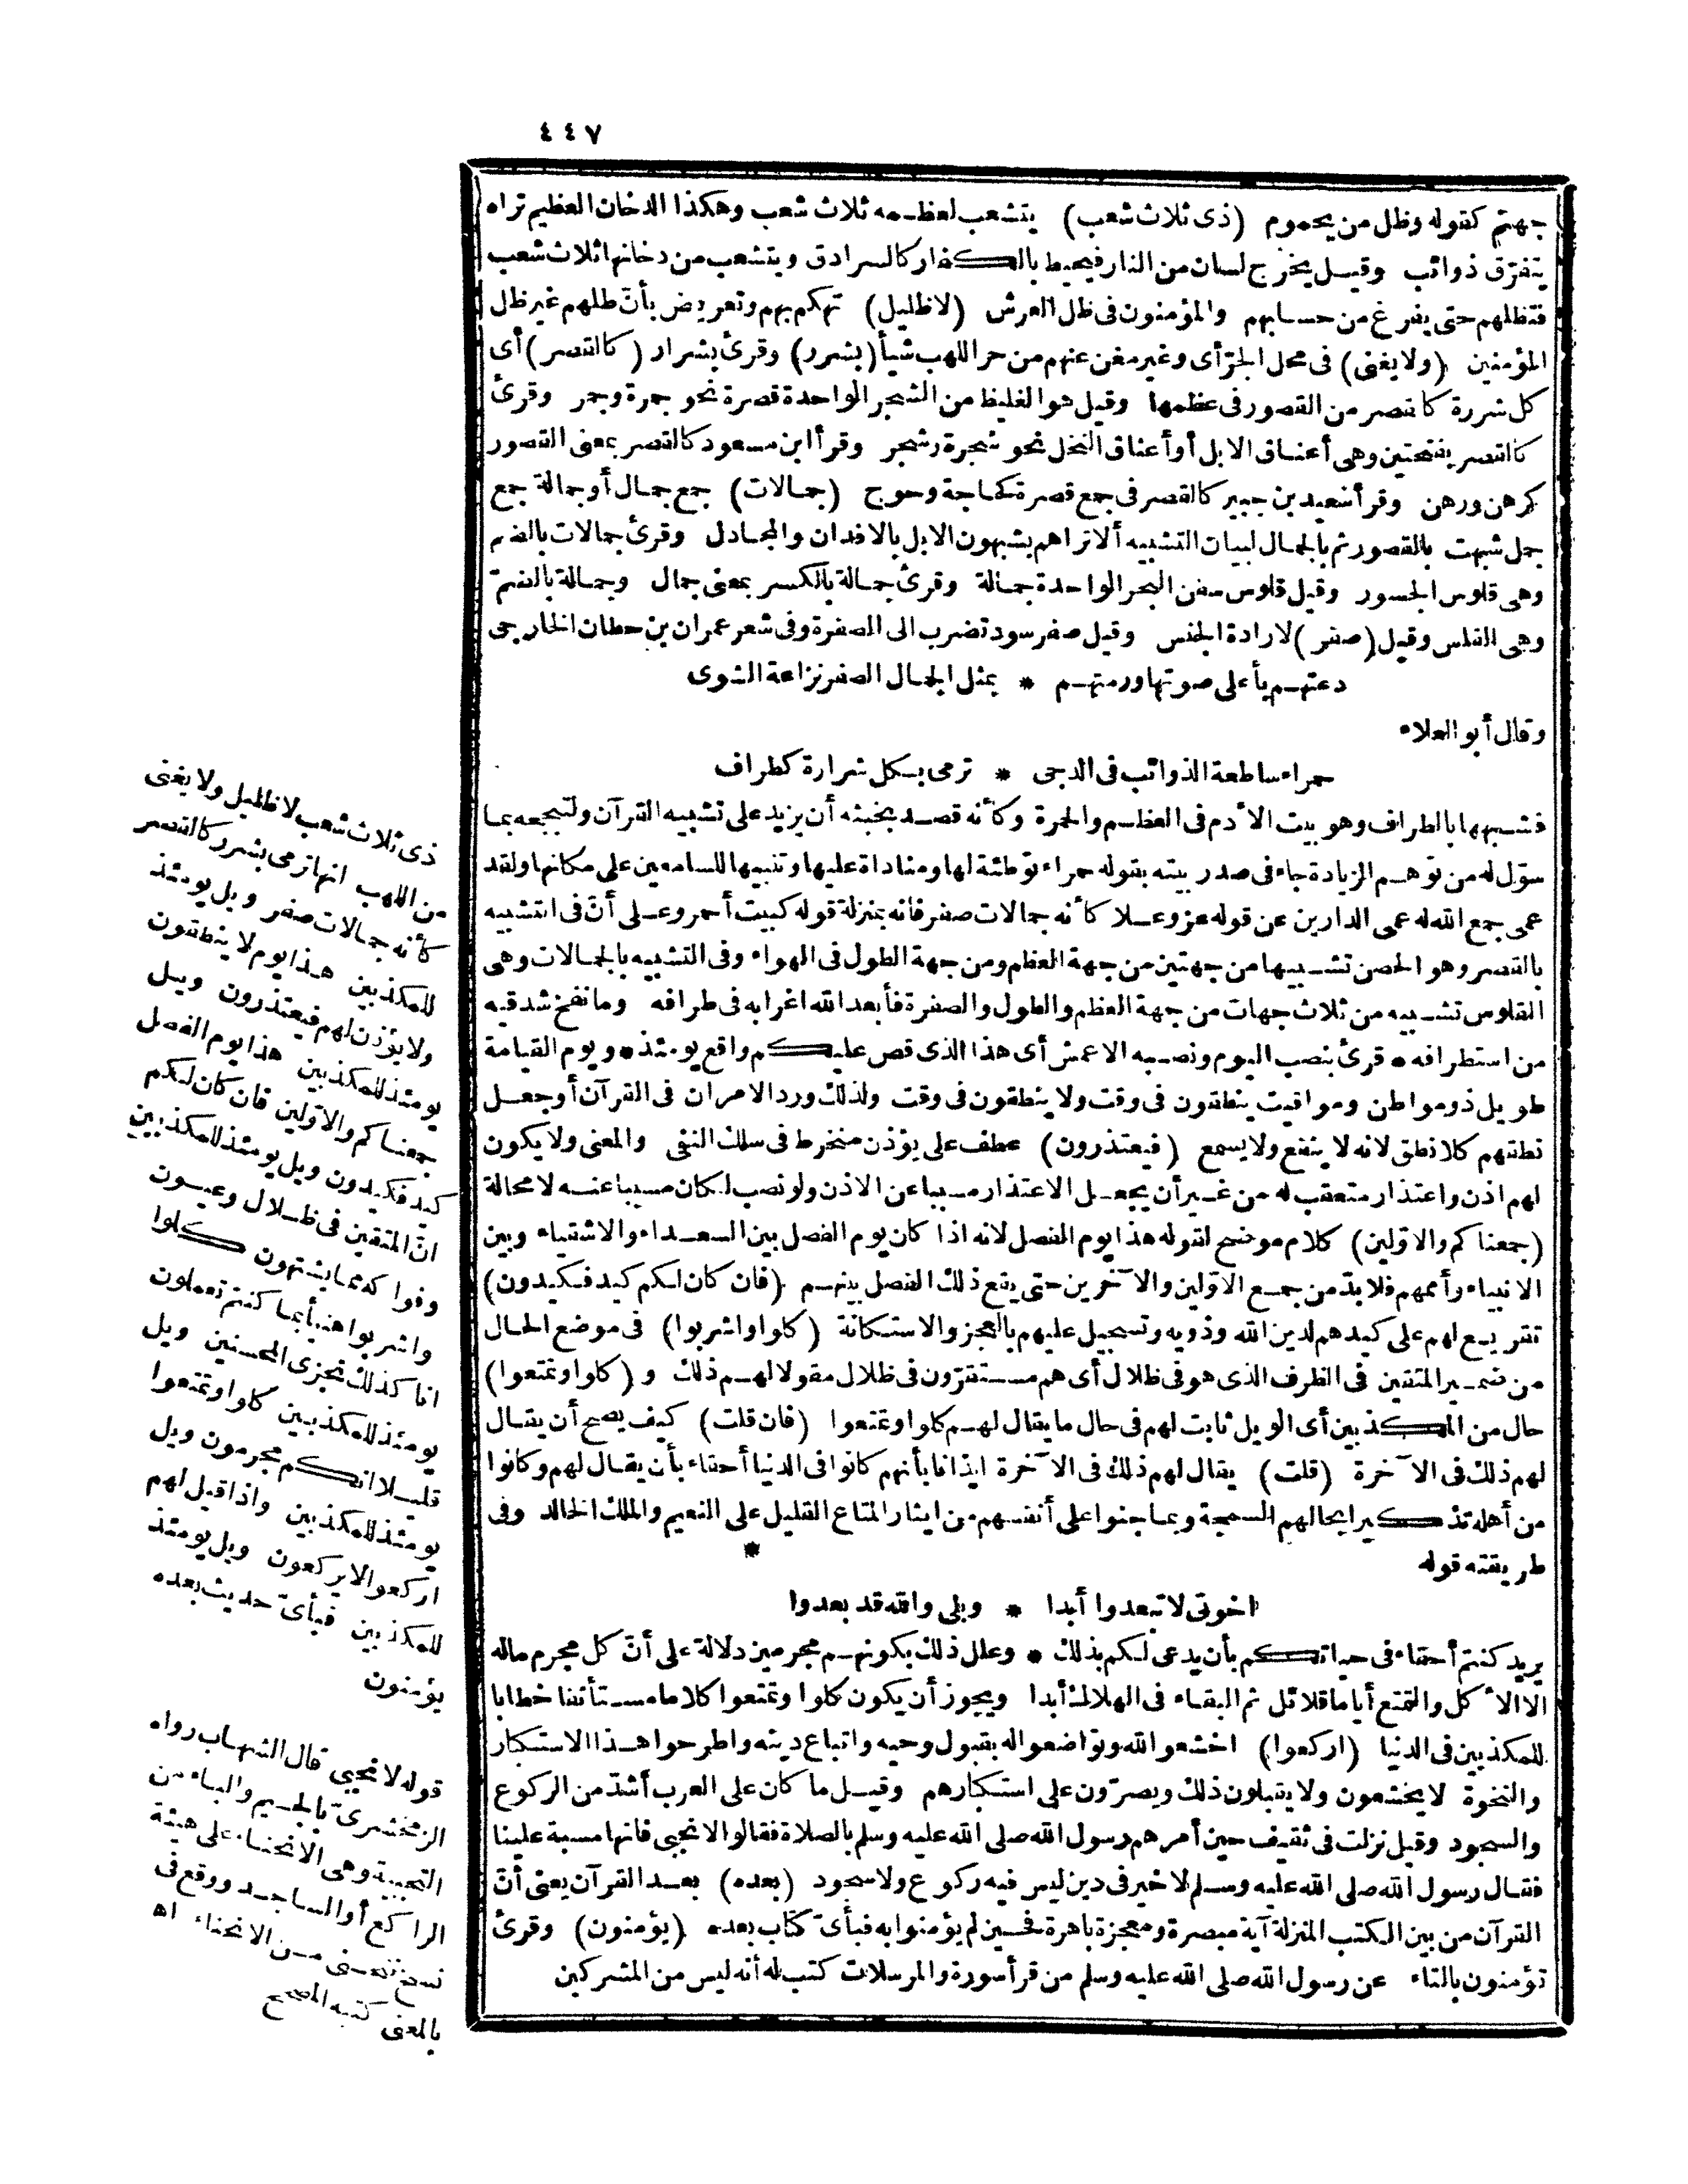 ٤٤٧
جهنم كقوله وظل من يحموم (ذى ثلاث شعب) يتشعب لعظمه ثلاث شعب وهكذا الدخان العظيم تراه
يتفرّق ذوائب وقيل يخرج لسان من النار فيحيط بالكفار كالسرادق ويتشعب من دخانها ثلاث شعب
فتظلهم حتى يفرغ من حسابهم والمؤمنون فى ظل العرش (لا ظليل) تهكم بهم وتعريض بأنّ ظلهم غير ظل
المؤمنين (ولا يغنى) فى محل الجرّ أى وغير مغن عنهم من حر اللهب شيأ (بشرر) وقرئ بشرار (كالقصر) أى
كل شررة كالقصر من القصور فى عظمها وقيل هو الغليظ من الشجر الواحدة قصرة نحو جمرة وجمر وقرئ
كالقصر بفتحتين وهى أعناق الابل أو أعناق النخل نحو شجرة وشجر وقرأ ابن مسعود كالقصر بمعنى القصور
كرهن ورهن وقرأ سعيد بن جبير كالقصر فى جمع قصرة كحاجة وحوج (جمالات) جمع جمال أو جمالة جمع
جمل شبهت بالقصور ثم بالجمال لبيان التشبيه ألا تراهم يشبهون الابل بالافدان والمجادل وقرئ جمالات بالضم
وهى قلوس الجسور وقيل قلوس سفن البحر الواحدة جمالة وقرئ جمالة بالكسر بمعنى جمال وجمالة بالضمّ
وهى القلس وقيل (صفر) لارادة الجنس وقيل صفر سود تضرب الى الصفرة وفى شعر عمران بن حطان الخارجى
دعتهم بأعلى صوتها ورمتهم * بمثل الجمال الصفر نزاعة الشوى
وقال أبو العلاء
حمراء ساطعة الذوائب فى الدجى * ترمى بكل شرارة كطراف
فشبهها بالطراف وهو بيت الأدم فى العظم والحمرة وكأنه قصد بخبثه أن يزيد على تشبيه القرآن ولتبجحه بما
سوّل له من توهم الزيادة جاء فى صدر بيته بقوله حمراء توطئة لها ومناداة عليها وتنبيها للسامعين على مكانها ولقد
عمى جمع الله له عمى الدارين عن قوله عز وعلا كأنه جمالات صفر فانه بمنزلة قوله كبيت أحمر وعلى أنّ فى التشبيه
بالقصر وهو الحصن تشبيها من جهتين من جهة العظم ومن جهة الطول فى الهواء وفى التشبيه بالجمالات وهى
القلوس تشبيه من ثلاث جهات من جهة العظم والطول والصفرة فأبعد الله اغرابه فى طرافه وما نفخ شدقيه
من استطرافه * قرئ بنصب اليوم ونصبه الاعمش أى هذا الذى قص عليكم واقع يومئذ * ويوم القيامة
طويل ذو مواطن ومواقيت ينطقون فى وقت ولا ينطقون فى وقت ولذلك ورد الامران فى القرآن أو جعل
نطقهم كلا نطق لانه لا ينفع ولا يسمع (فيعتذرون) عطف على يؤذن منخرط فى سلك النفى والمعنى ولا يكون
لهم اذن واعتذار متعقب له من غير أن يجعل الاعتذار مسببا عن الاذن ولو نصب لكان مسببا عنه لا محالة
(جمعناكم والاوّلين) كلام موضح لقوله هذا يوم الفصل لانه اذا كان يوم الفصل بين السعداء والاشقياء وبين
الانبياء وأممهم فلا بدّ من جمع الاوّلين والآخرين حتى يقع ذلك الفصل بينهم (فان كان لكم كيد فكيدون)
تقريع لهم على كيدهم لدين الله وذويه وتسجيل عليهم بالعجز والاستكانة (كلوا واشربوا) فى موضع الحال
من ضمير المتقين فى الظرف الذى هو فى ظلال أى هم مستقرّون فى ظلال مقولا لهم ذلك و (كلوا وتمتعوا)
حال من المكذبين أى الويل ثابت لهم فى حال ما يقال لهم كلوا وتمتعوا (فان قلت) كيف يصح أن يقال
لهم ذلك فى الآخرة (قلت) يقال لهم ذلك فى الآخرة ايذانا بأنهم كانوا فى الدنيا أحقاء بأن يقال لهم وكانوا
من أهله تذكيرا بحالهم السمجة وبما جنوا على أنفسهم من ايثار المتاع القليل على النعيم والملك الخالد وفى
طريقته قوله
اخوتى لا تبعدوا أبدا * وبلى والله قد بعدوا
يريد كنتم أحقاء فى حياتكم بأن يدعى لكم بذلك * وعلل ذلك بكونهم مجرمين دلالة على أنّ كل مجرم ماله
الا الأكل والتمتع أياما قلائل ثم البقاء فى الهلاك أبدا ويجوز أن يكون كلوا وتمتعوا كلاما مستأنفا خطابا
للمكذبين فى الدنيا (اركعوا) اخشعوا لله وتواضعوا له بقبول وحيه واتباع دينه واطرحوا هذا الاستكبار
والنخوة لا يخشعون ولا يقبلون ذلك ويصرّون على استكبارهم وقيل ما كان على العرب أشدّ من الركوع
والسجود وقيل نزلت فى ثقيف حين أمرهم رسول الله صلى الله عليه وسلم بالصلاة فقالوا لا نجبى فانها مسبة علينا
فقال رسول الله صلى الله عليه وسلم لا خير فى دين ليس فيه ركوع ولا سجود (بعده) بعد القرآن يعنى أنّ
القرآن من بين الكتب المنزلة آية مبصرة ومعجزة باهرة فحين لم يؤمنوا به فبأىّ كتاب بعده (يؤمنون) وقرئ
تؤمنون بالتاء عن رسول الله صلى الله عليه وسلم من قرأ سورة والمرسلات كتب له أنه ليس من المشركين
ذى ثلاث شعب لا ظليل ولا يغنى
من اللهب انها ترمى بشرر كالقصر
كأنه جمالات صفر ويل يومئذ
للمكذبين هذا يوم لا ينطقون
ولا يؤذن لهم فيعتذرون ويل
يومئذ للمكذبين هذا يوم الفصل
جمعناكم والاوّلين فان كان لكم
كيد فكيدون ويل يومئذ للمكذبين
انّ المتقين فى ظلال وعيون
وفواكه مما يشتهون كلوا
واشربوا هنيأ بما كنتم تعملون
انا كذلك نجزى المحسنين ويل
يومئذ للمكذبين كلوا وتمتعوا
قليلا انكم مجرمون ويل
يومئذ للمكذبين واذا قيل لهم
اركعوا لا يركعون ويل يومئذ
للمكذبين فبأىّ حديث بعده
يؤمنون
قوله لا نجبى قال الشهاب رواه
الزمخشرىّ بالجيم والباء من
التجبية وهى الانحناء على هيئة
الراكع أو الساجد ووقع فى
نسخ ننحنى من الانحناء اه
بالمعنى كتبه المصحح